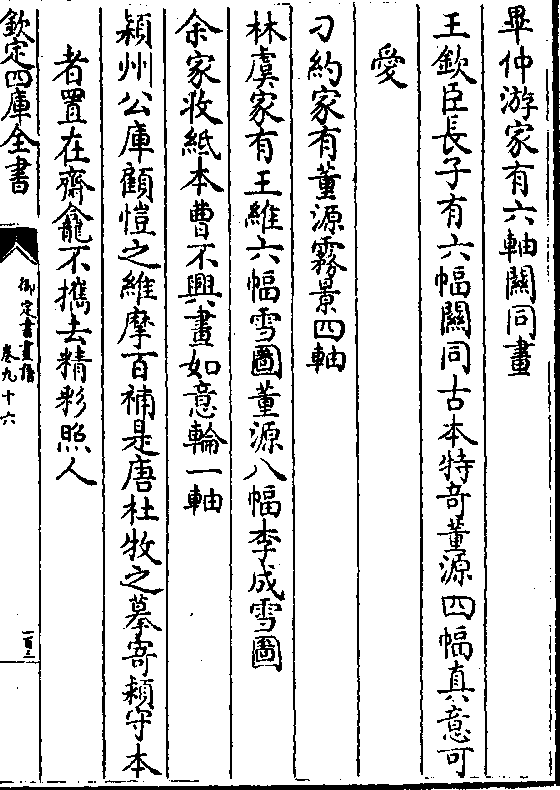 畢仲游家有六軸關同畫
王欽臣長子有六幅關同古本特奇董源四幅真意可
愛
刁約家有董源霧景四軸
林虞家有王維六幅雪圖董源八幅李成雪圖
余家收紙本曹不興畫如意輪一軸
潁州公庫顧愷之維摩百補是唐杜牧之摹寄潁守本
者置在齋龕不攜去精彩照人
欽定四庫全書
御定書畫譜
卷九十六